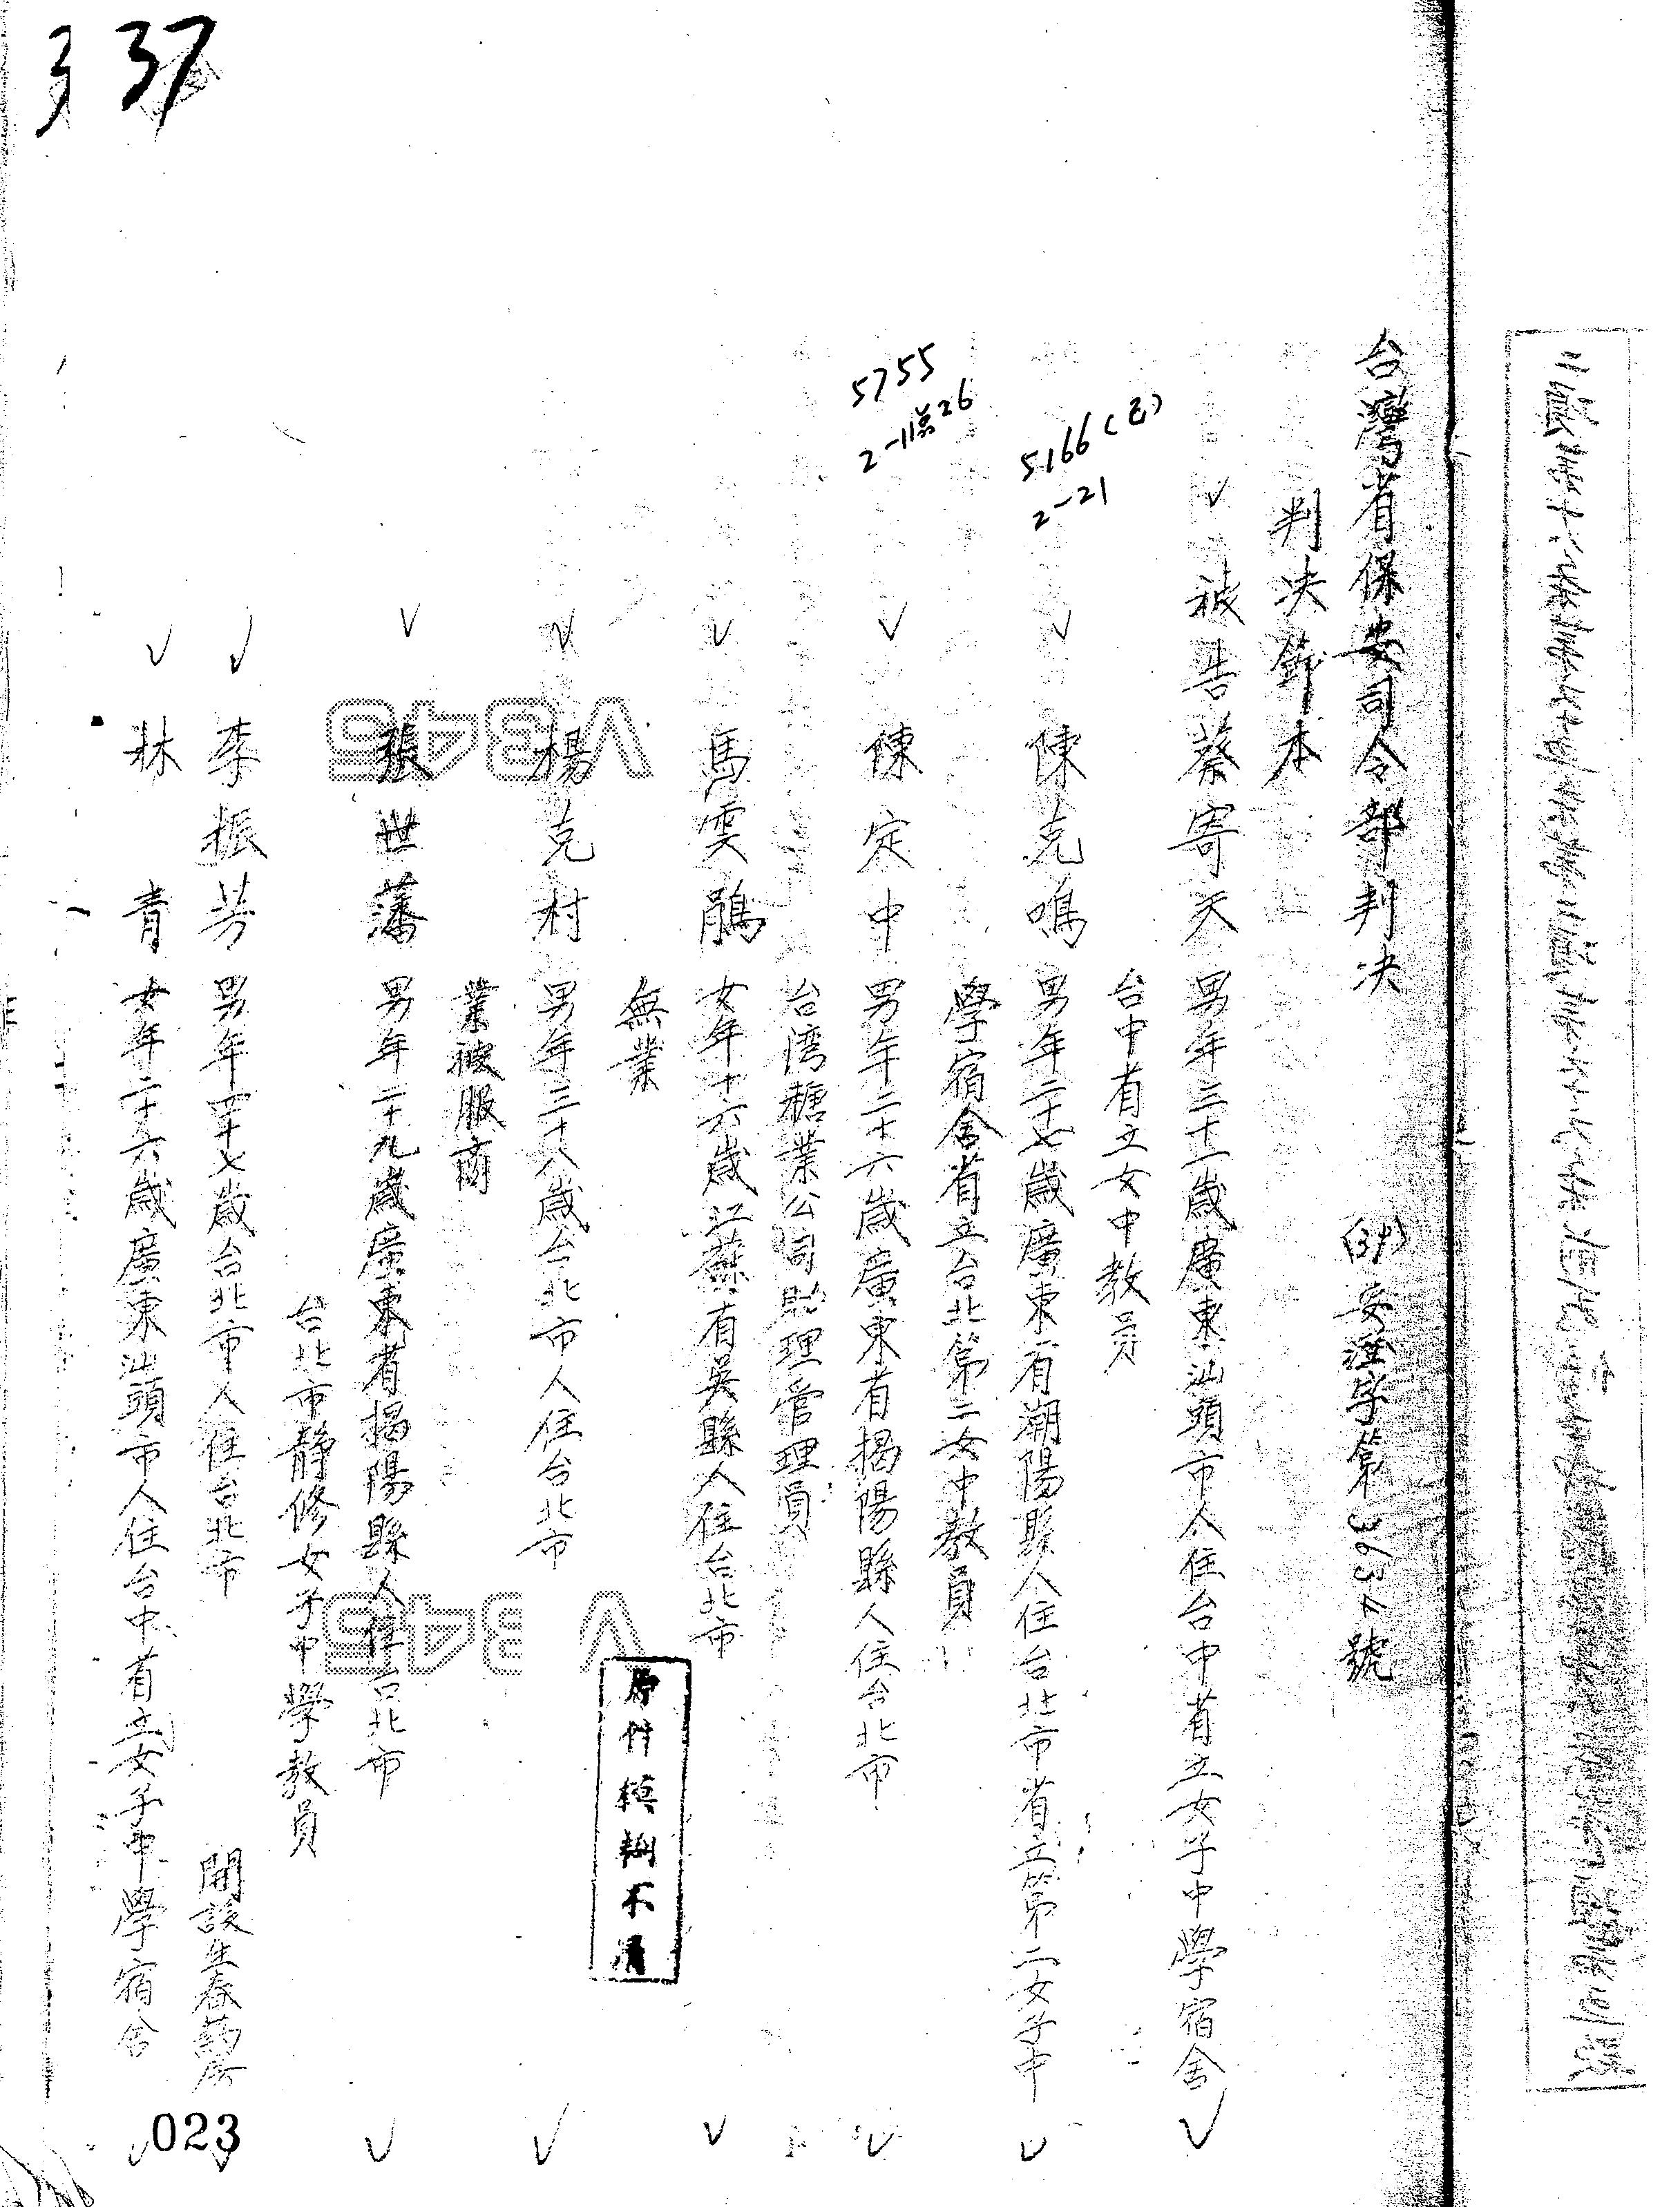 37
台灣省保安司令部判决
(39)安澄字第3632號
判决鈔本
被告蔡寄天 男年三十一歲廣東汕頭市人住台中省立女子中學宿舍
台中省立女中教員
5166(乙)
2-21
陳克鳴 男年二十七歲廣東省潮陽縣人住台北市省立第二女子中
學宿舍省立台北第二女中教員
5755
2-11第26
陳定中 男年二十六歲廣東省揭陽縣人住台北市
台湾糖業公司助理管理員
馬雯鵑 女年十六歲江蘇省吳縣人住台北市
無業
楊克村 男年三十八歲台北市人住台北市
業被服商
張世藩 男年二十九歲廣東省揭陽縣人住台北市
台北市静修女子中學教員
李振芳 男年四十七歲台北市人住台北市 開設生春藥房
林青 女年二十六歲廣東汕頭市人住台中省立女子中學宿舍
V345
V345
原件模糊不清
023